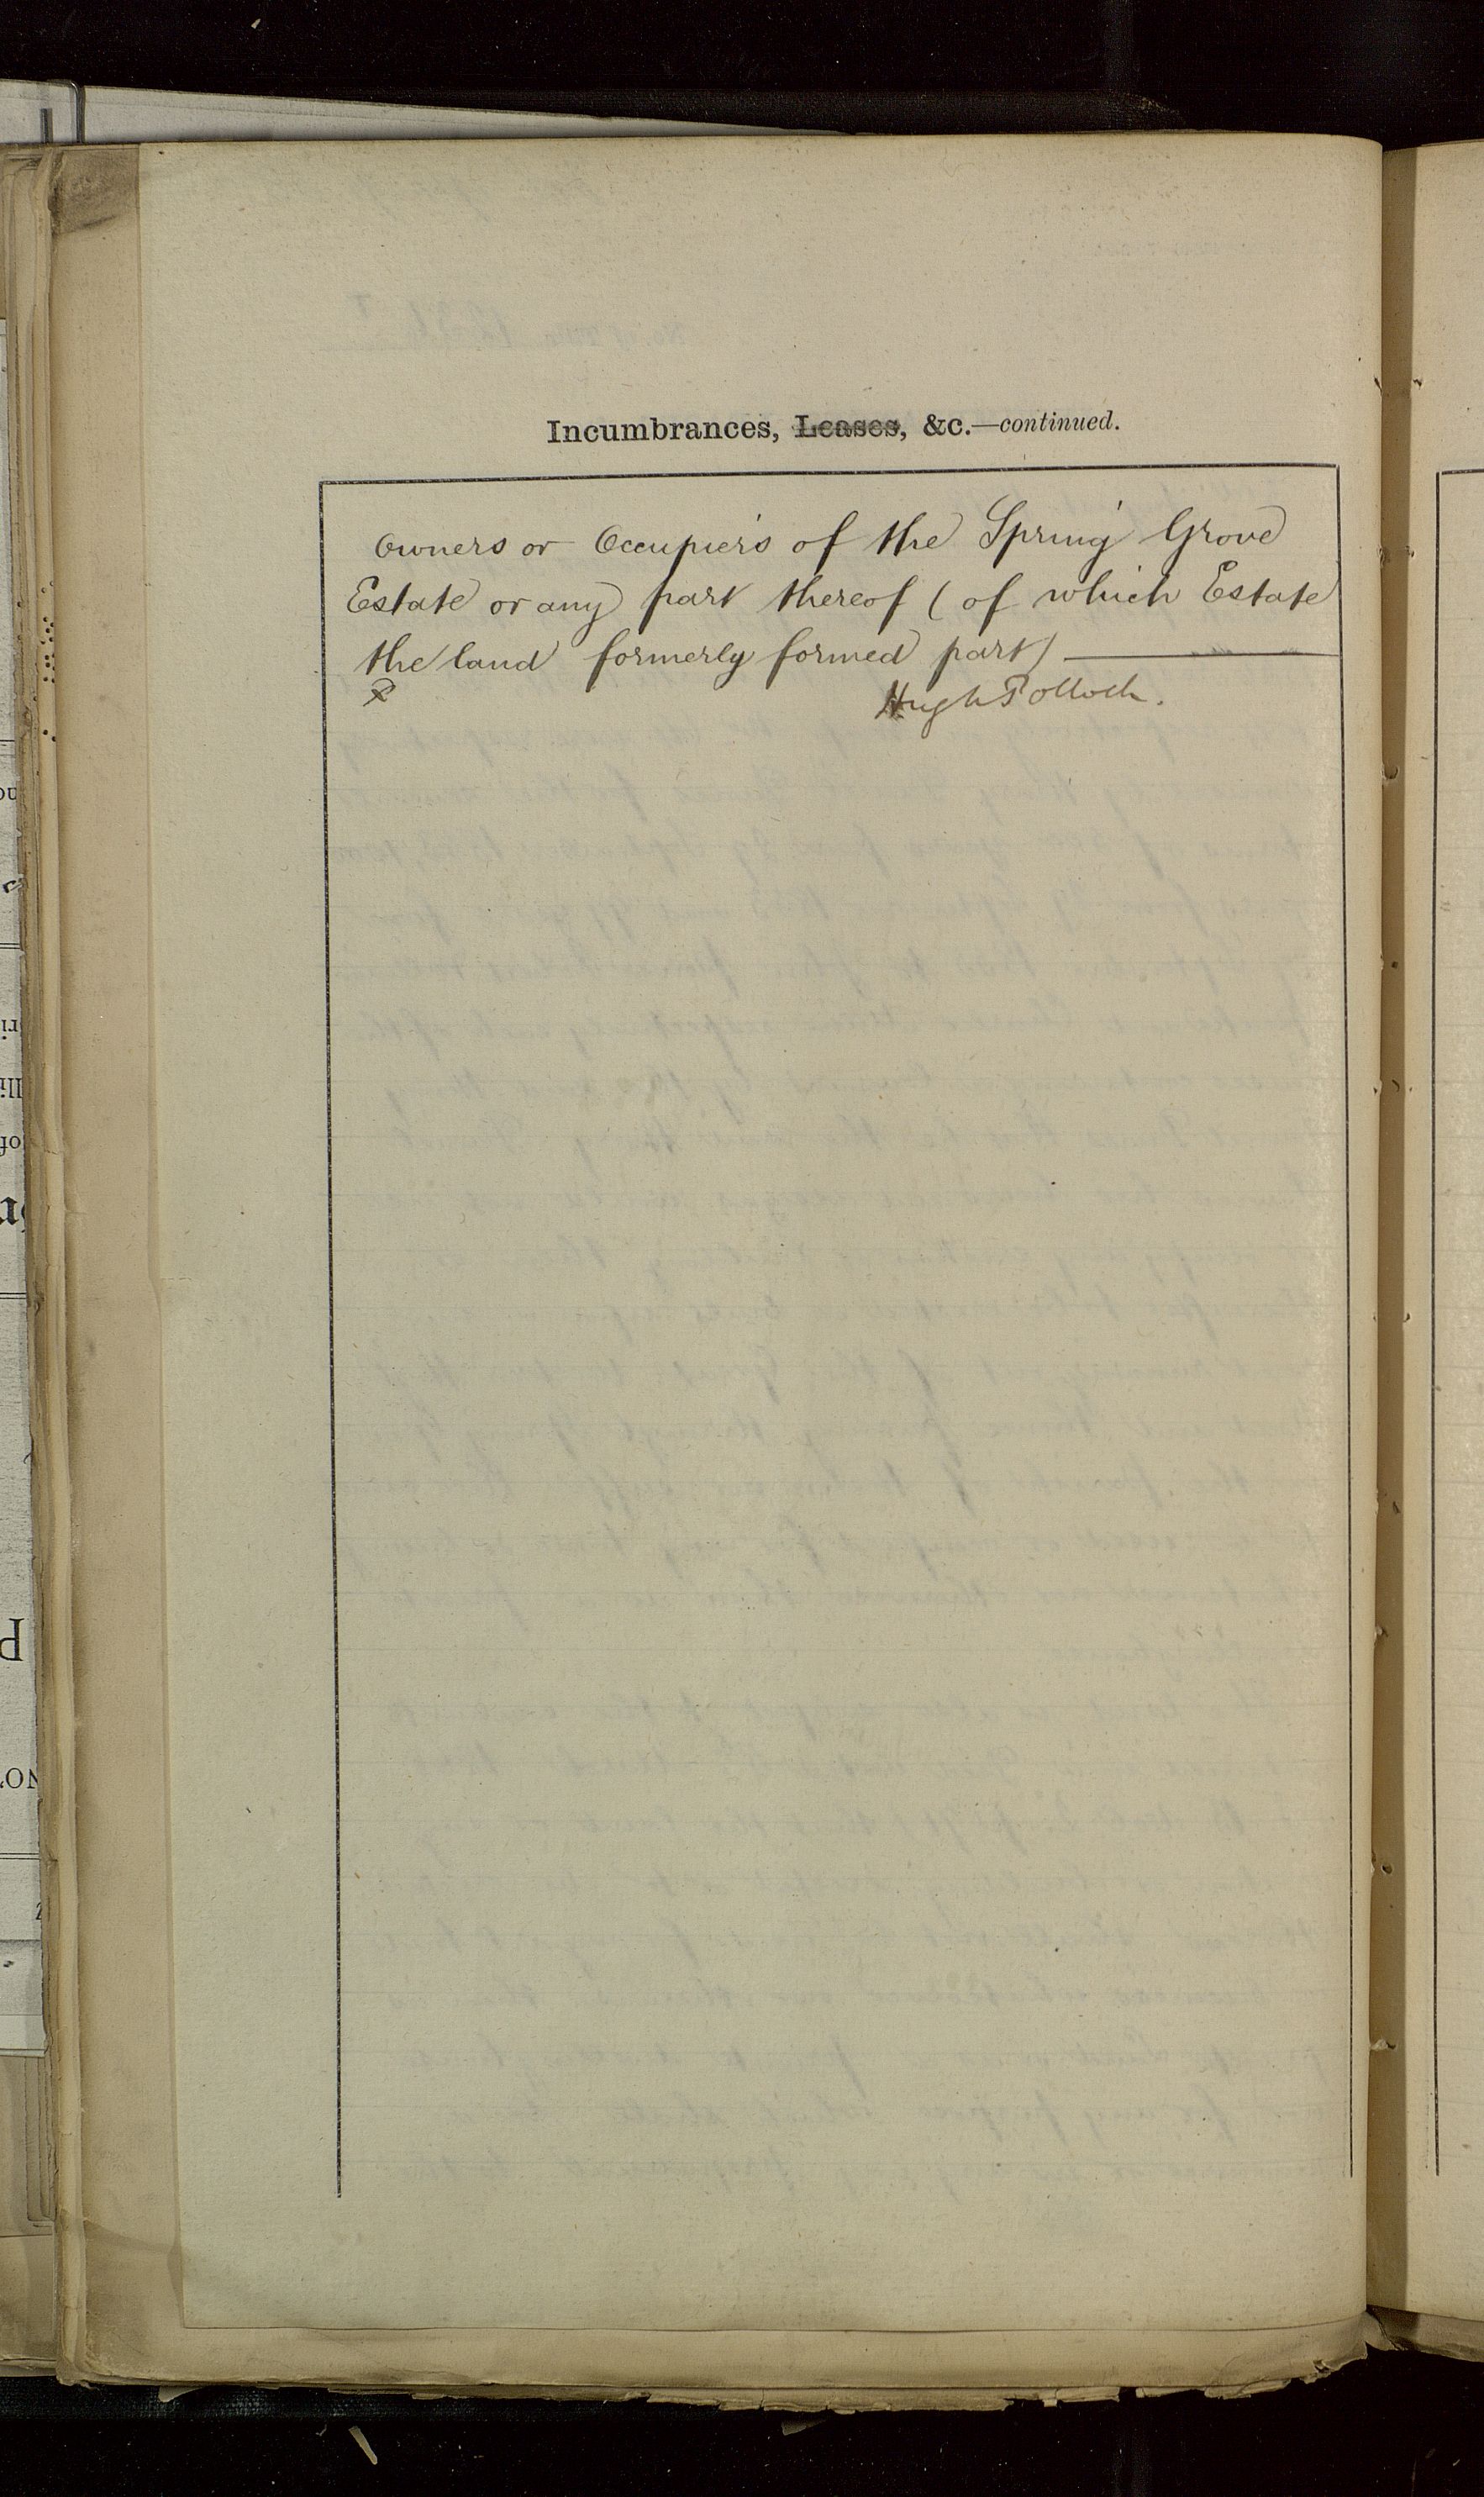 Incumbrances, Leases, &c.—continued.
Owners or Occupiers of the Spring Grove
Estate or any part thereof (of which Estate
the land formerly formed part)
Hugh Pollock.